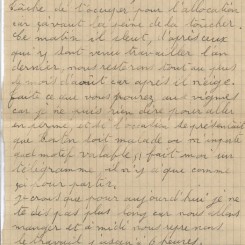 tâche de t'occuper pour l'allocation
car j'avais la peine de la toucher.
Ce matin il pleut, d'après ceux
que y dont venu travailler l'an
dernier, nous resterons tout au plus
de mois d'août car après il neige.
faite ce que vous pourrez aux vignes
car je ne suis bien dire pour aller
en ferme, et de l'occasion de présent
que Gaston soit malade ou n'importe
quel motif valable, fait moi un
télégramme il n'y a que comme
ça pour partir,
je crois que pour aujourd'hui je ne
te dis pas plus long car nous allons
manger et à midi nous reprenons
le travail jusqu'à 6 heures,